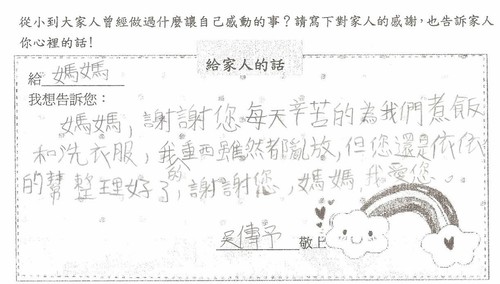 從小到大家人曾經做過什麼讓自己感動的事？請寫下對家人的感謝，也告訴家人
你心裡的話！
給家人的話
給 媽媽
我想告訴您：
媽媽，謝謝您每天辛苦的為我們煮飯
和洗衣服，我的東西雖然都亂放，但您還是依依
的幫整理好了，謝謝您，媽媽我愛您。
吳傳予 敬上